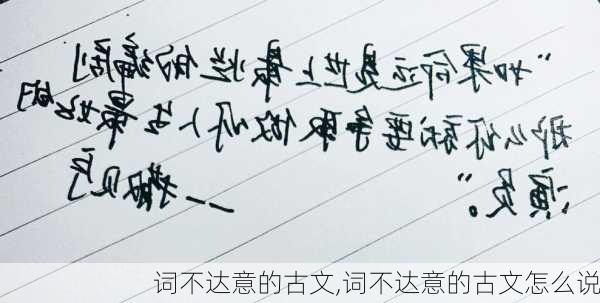 “如果命运是世上最烂的编剧
那么你就要争取做你人生最好的
演员。”
——撒贝宁
词不达意的古文,词不达意的古文怎么说